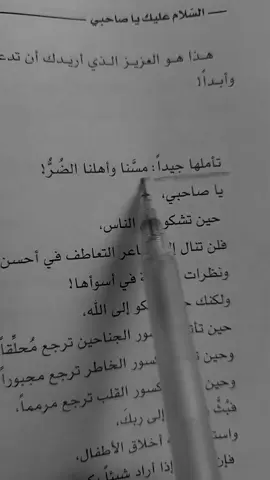 السَّلام عليك يا صاحبي
هذا هو العزيز الذي أريدك أن
وأبداً!
تأملها جيداً: مسَّنا وأهلنا الضُرُّ!
يا صاحبي،
حين تشكو الناس،
فلن تنال التعاطف في أحسن
ونظرات في أسوأها!
ولكنك إلى الله،
حين الجناحين ترجع مُحلِّقاً
وحين الخاطر ترجع مجبوراً
وحين القلب ترجع مرمماً،
فبُثَّ إلى ربكَ،
أخلاق الأطفال،
إذا أراد شيئاً